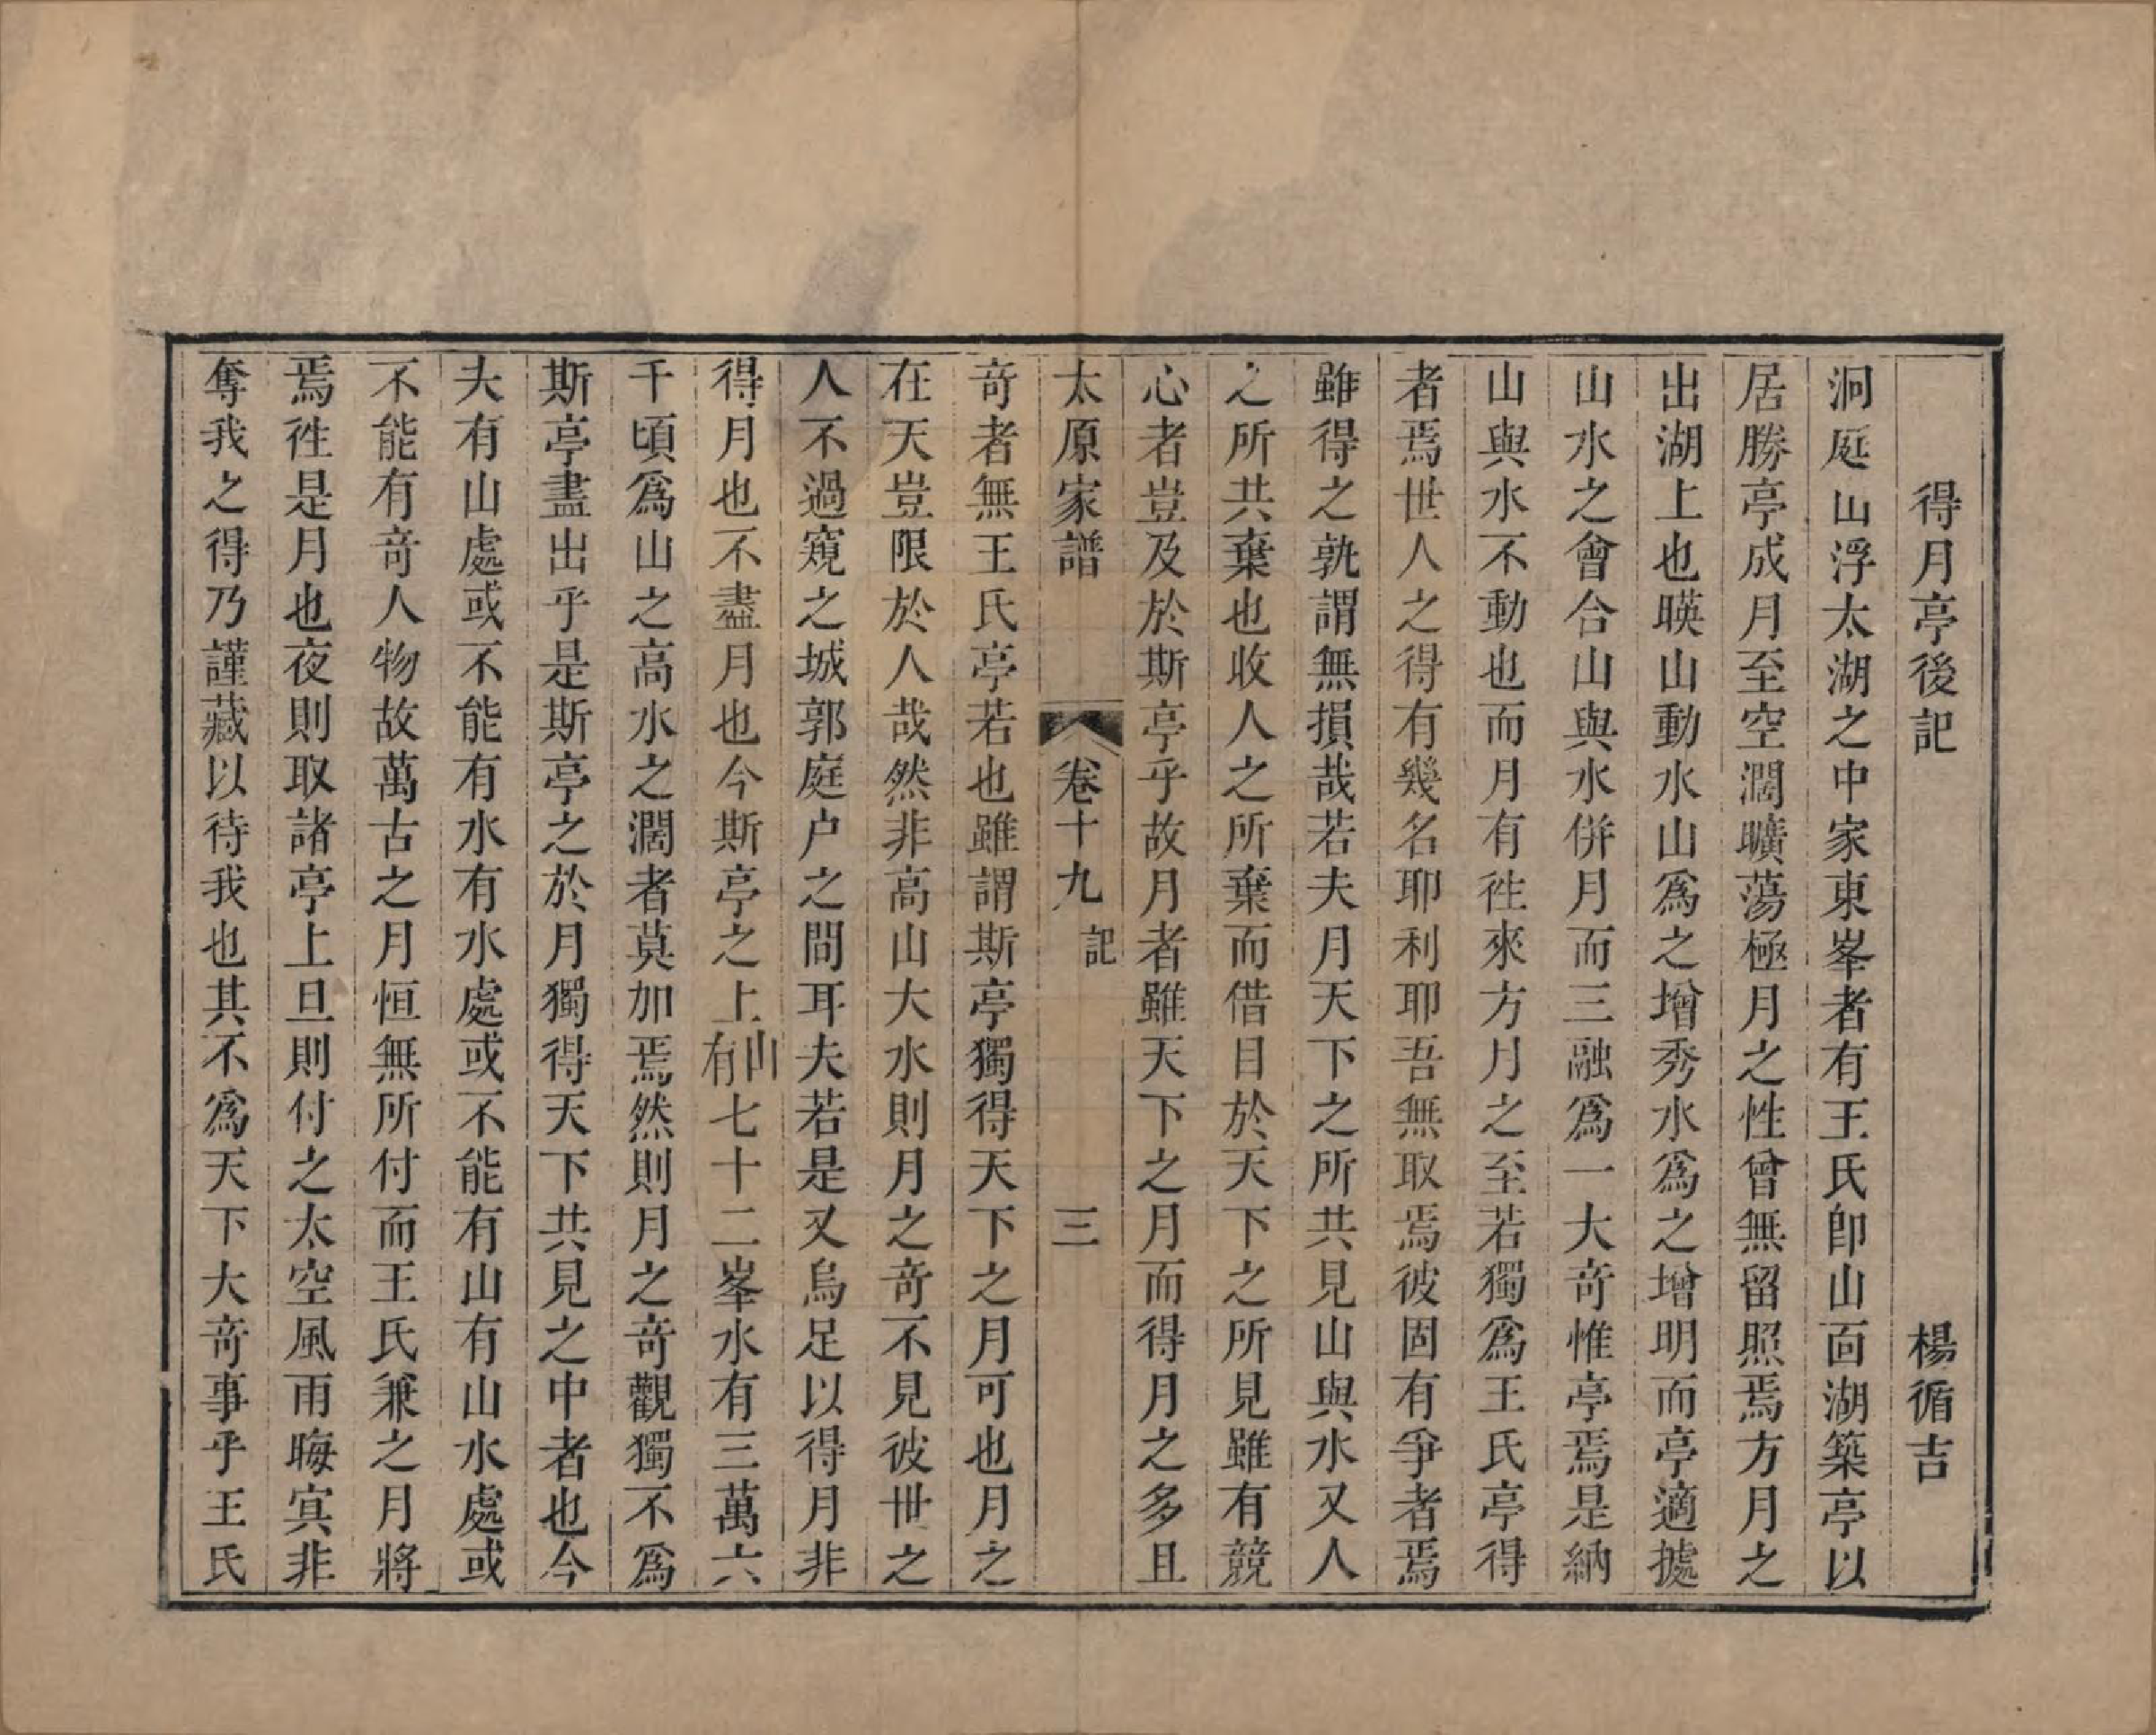 得月亭後記　楊循吉
洞庭山浮太湖之中家東峯者有王氏卽山面湖築亭以
居勝亭成月至空濶曠蕩極月之性曾無留照焉方月之
出湖上也暎山動水山爲之增秀水爲之增明而亭適據
山水之會合山與水併月而三融爲一大竒惟亭焉是納
山與水不動也而月有徃來方月之至若獨爲王氏亭得
者焉世人之得有幾名耶利耶吾無取焉彼固有爭者焉
雖得之孰謂無損哉若夫月天下之所共見山與水又人
之所共棄也收人之所棄而借目於天下之所見雖有競
心者豈及於斯亭乎故月者雖天下之月而得月之多且
太原家譜　卷十九 記　三
竒者無王氏亭若也雖謂斯亭獨得天下之月可也月之
在天豈限於人哉然非高山大水則月之竒不見彼世之
人不過窺之城郭庭户之間耳夫若是又烏足以得月非
得月也不盡月也今斯亭之上山有七十二峯水有三萬六
千頃爲山之高水之濶者莫加焉然則月之竒觀獨不爲
斯亭盡出乎是斯亭之於月獨得天下共見之中者也今
夫有山處或不能有水有水處或不能有山有山水處或
不能有竒人物故萬古之月恒無所付而王氏兼之月將
焉徃是月也夜則取諸亭上旦則付之太空風雨晦冥非
奪我之得乃謹藏以待我也其不爲天下大竒事乎王氏